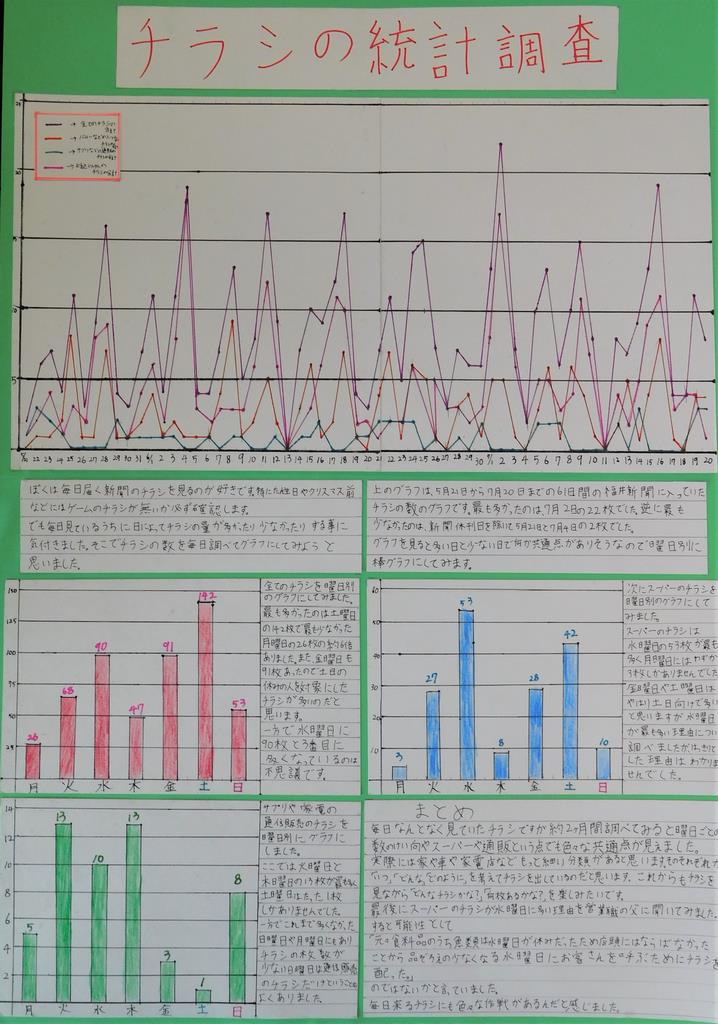 チラシの統計調査
25
20
15
10
5
22 23 24 25 26 27 28 29 30 31 6/1 2 3 4 5 6 7 8 9 10 11 12 13 14 15 16 17 18 19 20
22 23 24 25 26 27 28 29 30 7/1 2 3 4 5 6 7 8 9 10 11 12 13 14 15 16 17 18 19 20
ぼくは毎日届く新聞のチラシを見るのが好きです。特に誕生日やクリスマス前
などにはゲームのチラシが無いか必ず確認します。
でも毎日見ているうちに日によってチラシの量が多かったり少なかったりする事に
気付きました。そこでチラシの数を毎日調べてグラフにしてみようと
思いました。
上のグラフは、5月21日から7月20日までの61日間の福井新聞に入っていた
チラシの数のグラフです。最も多かったのは、7月2日の22枚でした。逆に最も
少なかったのは、新聞休刊日を除いて5月21日と7月4日の2枚でした。
グラフを見ると多い日と少ない日で何か共通点がありそうなので曜日別に
棒グラフにしてみます。
150
125
100
75
50
25
26 68 90 47 91 142 53
月 火 水 木 金 土 日
全てのチラシを曜日別
のグラフにしてみました。
最も多かったのは土曜日
の142枚で最も少なかった
月曜日の26枚の約6倍
ありました。また金曜日も
91枚あったので土日の
休みの人を対象にした
チラシが多いのだと
思います。
一方で水曜日に
90枚と3番目に
多くなっているのは
不思議です。
60
50
40
30
20
10
3 27 53 8 28 42 10
月 火 水 木 金 土 日
次にスーパーのチラシを
曜日別のグラフにして
みました。
スーパーのチラシは
水曜日の53枚が最も
多く月曜日にはわずか
3枚しかありませんでした
金曜日や土曜日は
やはり土日向けで多い
と思いますが水曜日
が最も多い理由につい
調べましたがはっきりと
した理由はわかりま
せんでした。
14
12
10
8
6
4
2
5 13 10 13 3 1 8
月 火 水 木 金 土 日
サプリや家電の
通信販売のチラシを
曜日別にグラフに
しました。
ここでは火曜日と
木曜日の13枚が最も多く
土曜日はたった1枚
しかありませんでした。
一方でこれまで多くなかった
日曜日や月曜日にもあり
チラシの枚数が
少ない日曜日は通信販売
のチラシだけということも
よくありました。
まとめ
毎日なんとなく見ていたチラシですが約2ヶ月間調べてみると曜日ごとの
数のけい向やスーパーや通販という点でも色々な共通点が見えました。
実際には家や車や家電店などもっと細い分類があると思いますがそれぞれが
「いつ」、「どんな」、「どのように」を考えてチラシを出しているのだと思います。これからもチラシを
見ながら「どんなチラシかな?」、「何枚あるかな?」を楽しみたいです。
最後にスーパーのチラシが水曜日に多い理由を営業職の父に聞いてみました。
すると可能性として
「元々食料品のうち魚類は水曜日が休みだったため店頭にはならばなかった
ことから品ぞろえの少なくなる水曜日にお客さんを呼ぶためにチラシを
配った。」
のではないかと言っていました。
毎日来るチラシにも色々な作戦があるんだと感じました。